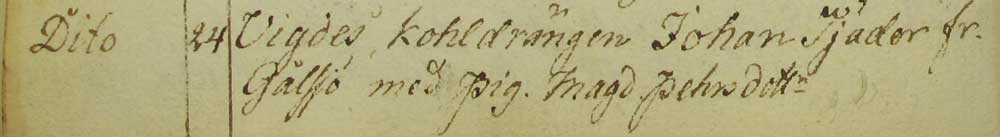 Dito 24 Vigdes kohldrängen Johan Sjäder fr.
Gålsjö med Pig. Magd. Pehrsdottr